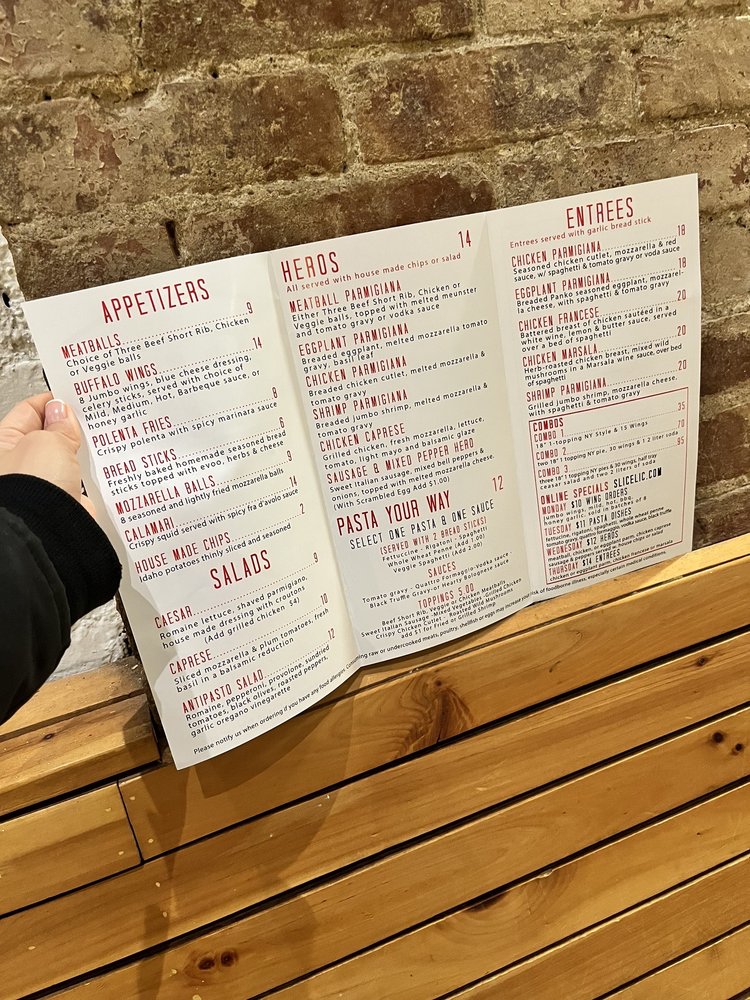 APPETIZERS
MEATBALLS 9
Choice of Three Beef Short Rib, Chicken
or Veggie balls
BUFFALO WINGS 14
8 Jumbo wings, blue cheese dressing,
celery sticks, served with choice of
Mild, Medium, Hot, Barbeque sauce, or
honey garlic
POLENTA FRIES 8
Crispy polenta with spicy marinara sauce
BREAD STICKS 6
Freshly baked homemade seasoned bread
sticks topped with evoo, herbs & cheese
MOZZARELLA BALLS 9
8 seasoned and lightly fried mozzarella balls
CALAMARI 14
Crispy squid served with spicy fra d'avolo sauce
HOUSE MADE CHIPS 2
Idaho potatoes thinly sliced and seasoned
SALADS
CAESAR 9
Romaine lettuce, shaved parmigiano,
house made dressing with croutons
(Add grilled chicken $4)
CAPRESE 10
Sliced mozzarella & plum tomatoes, fresh
basil in a balsamic reduction
ANTIPASTO SALAD 12
Romaine, pepperoni, provolone, sundried
tomatoes, black olives, roasted peppers,
garlic oregano vinegarette
HEROS 14
All served with house made chips or salad
MEATBALL PARMIGIANA
Either Three Beef Short Rib, Chicken or
Veggie balls, topped with melted meunster
and tomato gravy or vodka sauce
EGGPLANT PARMIGIANA
Breaded eggplant, melted mozzarella tomato
gravy, basil leaf
CHICKEN PARMIGIANA
Breaded chicken cutlet, melted mozzarella &
tomato gravy
SHRIMP PARMIGIANA
Breaded jumbo shrimp, melted mozzarella &
tomato gravy
CHICKEN CAPRESE
Grilled chicken, fresh mozzarella, lettuce,
tomato, light mayo and balsamic glaze
SAUSAGE & MIXED PEPPER HERO
Sweet Italian sausage, mixed bell peppers &
onions, topped with melted mozzarella cheese.
(With Scrambled Egg Add $1.00)
PASTA YOUR WAY 12
SELECT ONE PASTA & ONE SAUCE
(SERVED WITH 2 BREAD STICKS)
Fettuccine - Rigatoni - Spaghetti
Whole Wheat Penne (Add 1.00)
Veggie Spaghetti (Add 2.00)
SAUCES
Tomato gravy - Quattro Formaggio-Vodka sauce
Black Truffle Gravy-or Hearty Bolognese sauce
TOPPINGS 5.00
Beef Short Rib, Veggie or Chicken Meatballs
Sweet Italian Sausage -Mixed Vegetables -Grilled Chicken
Crispy Chicken Cutlet - Roasted Wild Mushrooms
add $1 for Fried or Grilled Shrimp
ENTREES
Entrees served with garlic bread stick
CHICKEN PARMIGIANA 18
Seasoned chicken cutlet, mozzarella & red
sauce, w/ spaghetti & tomato gravy or voda sauce
EGGPLANT PARMIGIANA 18
Breaded Panko seasoned eggplant, mozzarel-
la cheese, with spaghetti & tomato gravy
CHICKEN FRANCESE 20
Battered breast of chicken sautéed in a
white wine, lemon & butter sauce, served
over a bed of spaghetti
CHICKEN MARSALA 20
Herb-roasted chicken breast, mixed wild
mushrooms in a Marsala wine sauce, over bed
of spaghetti
SHRIMP PARMIGIANA 20
Grilled jumbo shrimp, mozzarella cheese,
with spaghetti & tomato gravy
COMBOS
COMBO 1 35
18" 1-topping NY Style & 15 Wings
COMBO 2 70
two 18" 1 topping NY pie, 30 wings & 1 2 liter soda
COMBO 3 95
three 18" 1 topping NY pies & 30 wings, half tray
ceasar salad and two 2 liters of soda
ONLINE SPECIALS SLICELIC.COM
MONDAY $10 WING ORDERS
jumbo wings, mild, hot, bbq,
honey garlic, sold in batches of 8
TUESDAY $11 PASTA DISHES
fettuccine, rigatoni, spaghetti, whole wheat penne
tomato gravy, quattro formaggio, vodka sauce, black truffle
WEDNESDAY $12 HEROS
meatball, chicken, or eggplant parm, chicken caprese
sausage & peppers served w- house chips or salad
THURSDAY $14 ENTREES
chicken or eggplant parm, chicken francese or marsala
Please notify us when ordering if you have any food allergies. Consuming raw or undercooked meats, poultry, shellfish or eggs may increase your risk of foodborne illness, especially certain medical conditions.